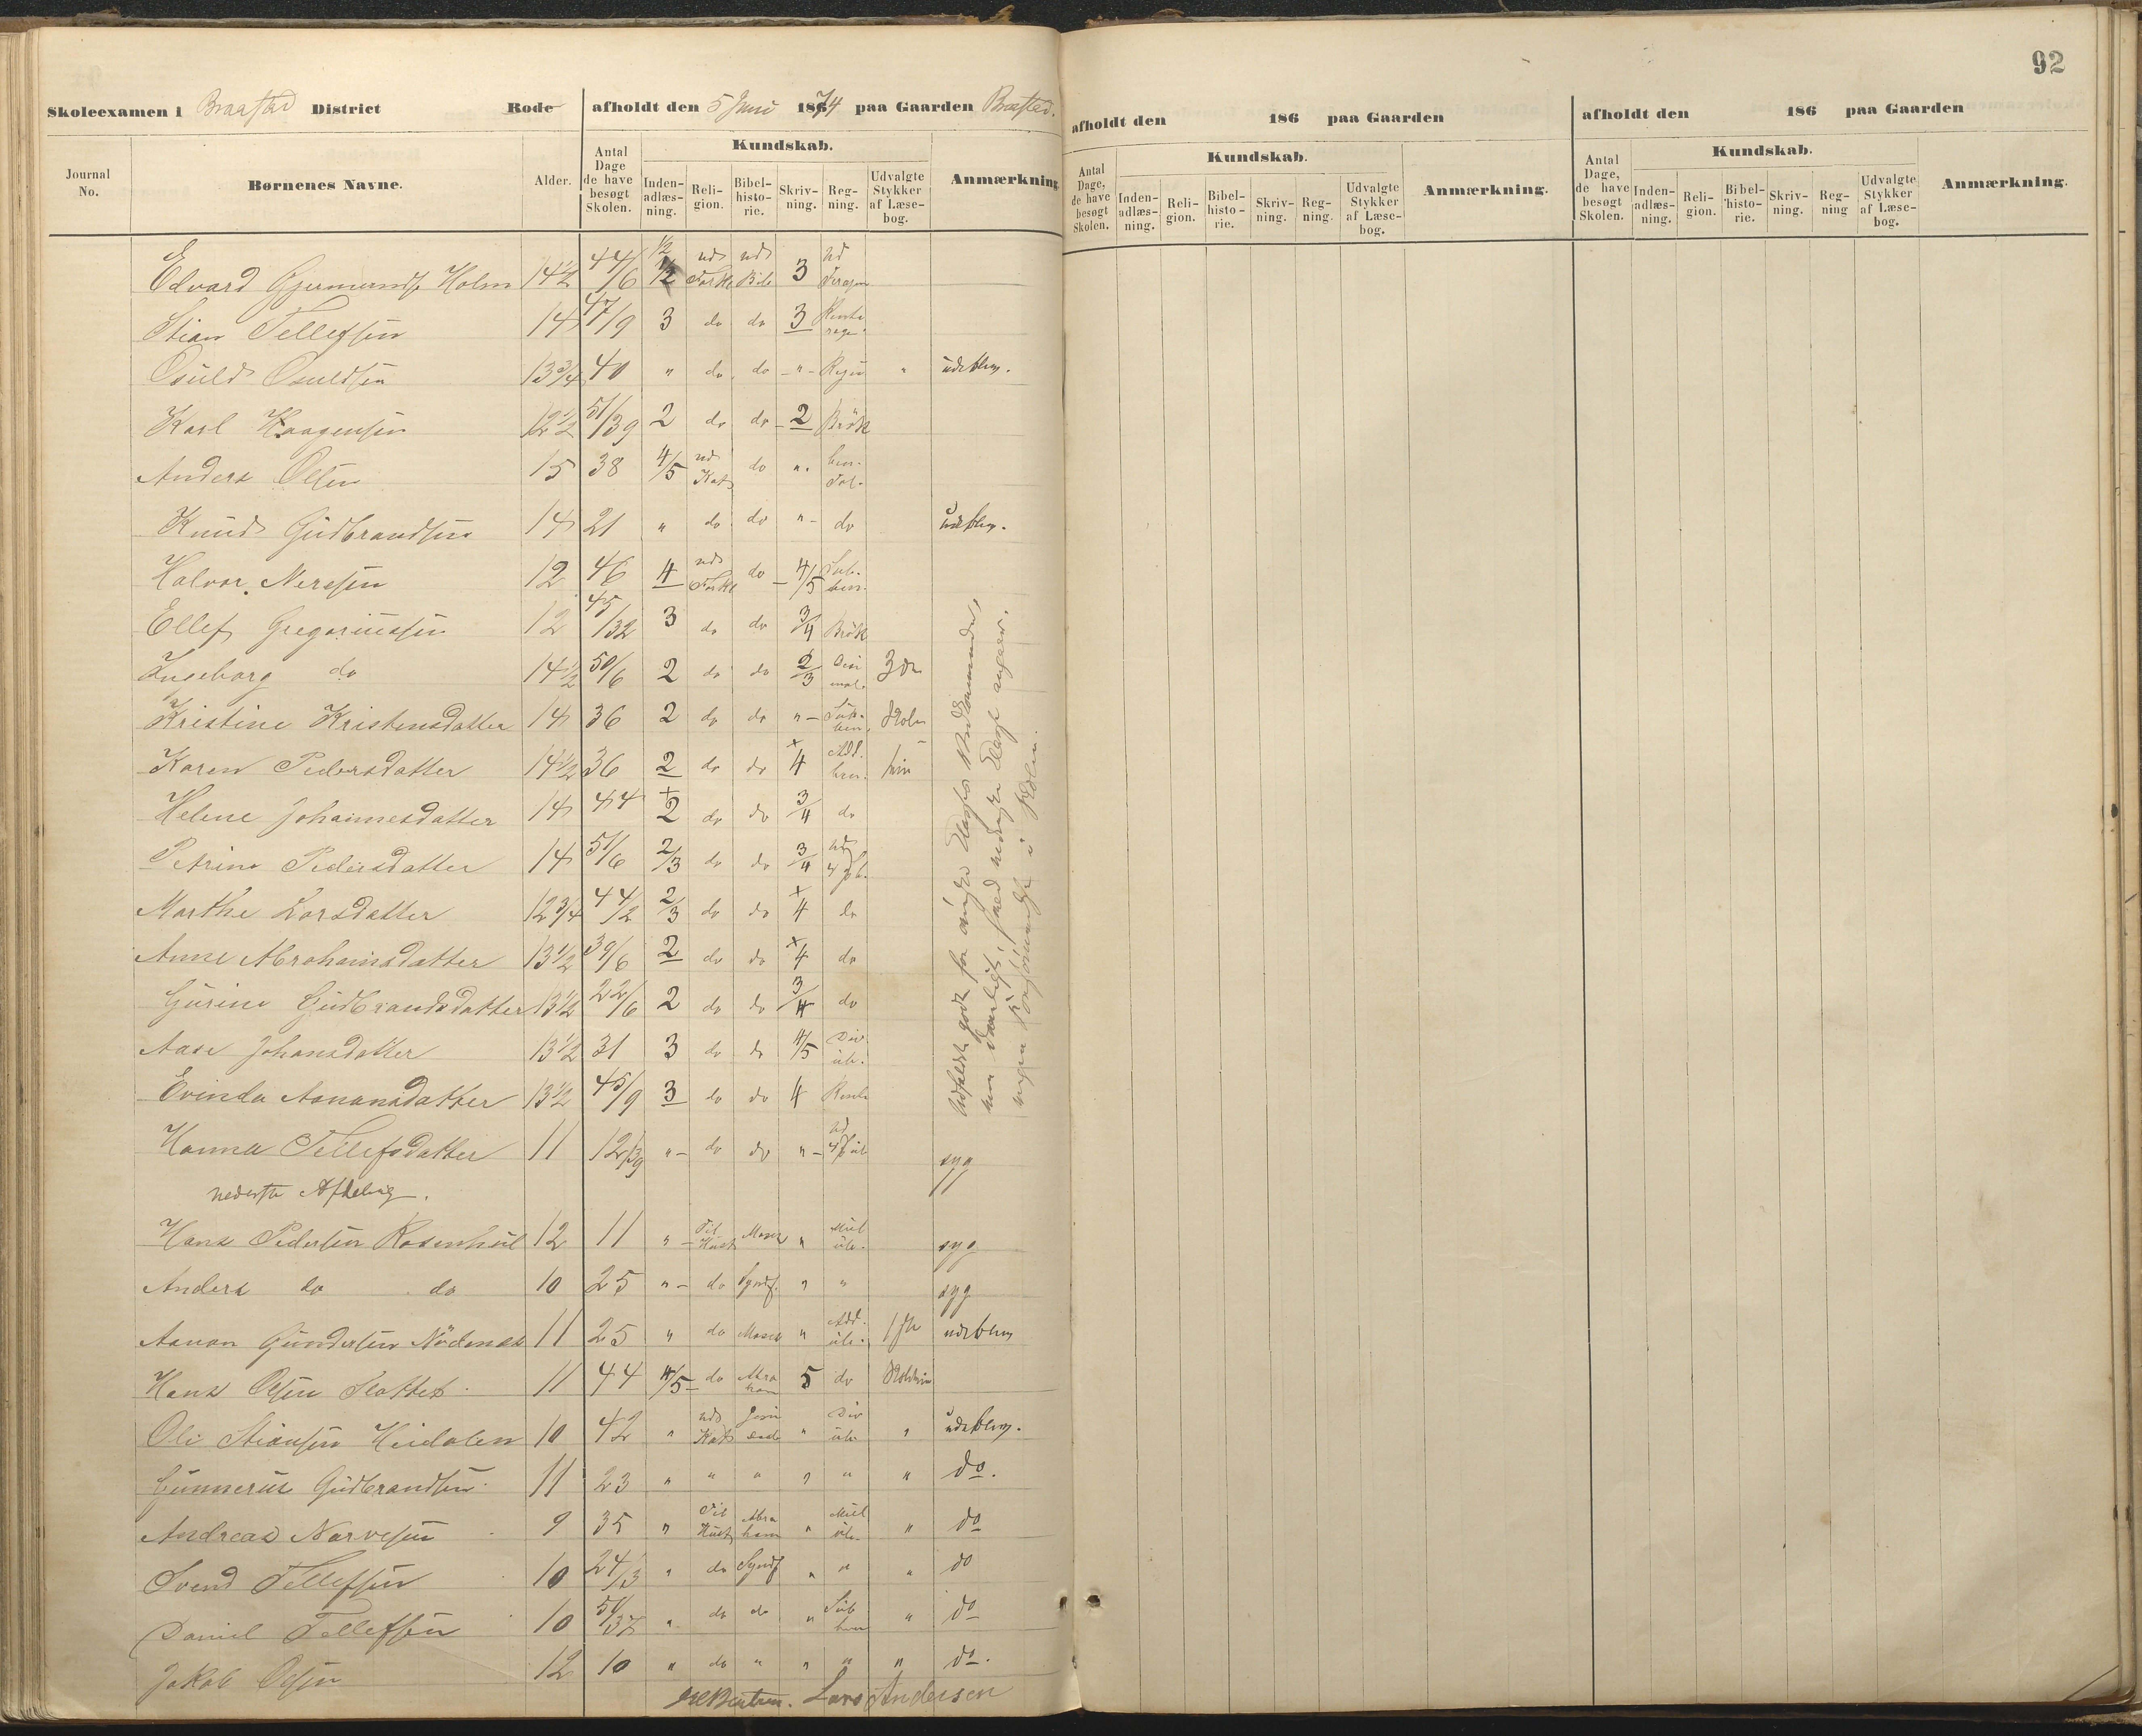 92
Skoleexamen i Braastad District Rode afholdt den 5 Juni 1874 paa Gaarden Braasted.
Journal No. Børnenes Navne. Alder. Antal Dage de have besøgt Skolen. Kundskab. Anmærkning
Inden-adlæs-ning. Reli-gion. Bibel-histo-rie. Skriv-ning. Reg-ning. Udvalgte Stykker af Læse-bog.
Edvard Gjermunds. Holm 14½ 44/6 1/2 uds Forkl uds Bib 3
Stian Tellefsen 14 47/9 3 do do 3 Rente
Osuld Osuldsen 13¾ 40 " do do - " - " udeblev.
Karl Haagensen 12½ 51/39 2 do do 2 Brök
Anders Olsen 15 38 4/5 uds Kat do "
Knud Gudbrandsen 14 21 " do do " - do udeblev.
Halvor Nersesen 12 46 4 uds Forkl do 4/5 Sub. ben.
Ellef Gregoriussen 12 45/32 3 do do 3/4 Brök
Ingeborg do 14½ 50/6 2 do do 2/3 3die
Kristine Kristensdatter 14 36 2 do do " - Sub. ben. Skole
Karen Pedersdatter 14½ 36 2 do do 4 Add. ben. trin
Helene Johannesdatter 14 44 2 do do 3/4 do
Petrine Pedersdatter 14 51/6 2/3 do do 3/4
Marthe Larsdatter 12¾ 44/2 2/3 do do 4 do
Anne Abrahamsdatter 13½ 39/6 2 do do 4 do
Gurine Gudbrandsdatter 13½ 22/6 2 do do 3/4 do
Aase Johansdatter 13½ 31 3 do do 4/5 Div ub.
Evinda Aanonsdatter 13½ 45/9 3 do do 4 Rente
Hanna Tellefsdatter 11 12/39 " - do do " - syg
nederste Afdeling.
Hans Pedersen Rosenhul 12 11 " - Til Hust " Mul ub. syg
Anders do do 10 25 " - do Syndf. " " syg
Aanon Gundersen Nödenæs 11 25 " do " Add. ub. udeblev
Hans Olsen Slottet 11 44 4/5 do Abra ham 5 do Skoletrin
Ole Stiansen Heidalen 10 42 " uds Kat " Div ub " udeblev.
Gunnerus Gudbrandsen 11 23 " " " " " " do.
Andreas Narvesen 9 35 " Til Hust Abra ham " Mul ub. " do
Svend Tellefsen 10 24/3 " do Syndf " " " do
Daniel Tellefsen 10 51/37 " do do " Sub ben " do
Jakob Olsen 12 10 " do " " " " do.
Udfaldet godt for øverste Klasses Vedkommende,
men daarligt, hvad nederste Klasse angaar.
ingen i Skolen.
Lars Andersen
afholdt den 186 paa Gaarden
Antal Dage, de have besøgt Skolen. Kundskab. Anmærkning.
Inden-adlæs-ning. Reli-gion. Bibel-histo-rie. Skriv-ning. Reg-ning. Udvalgte Stykker af Læse-bog.
afholdt den 186 paa Gaarden
Antal Dage, de have besøgt Skolen. Kundskab. Anmærkning.
Inden-adlæs-ning. Reli-gion. Bibel-histo-rie. Skriv-ning. Reg-ning Udvalgte Stykker af Læse-bog.